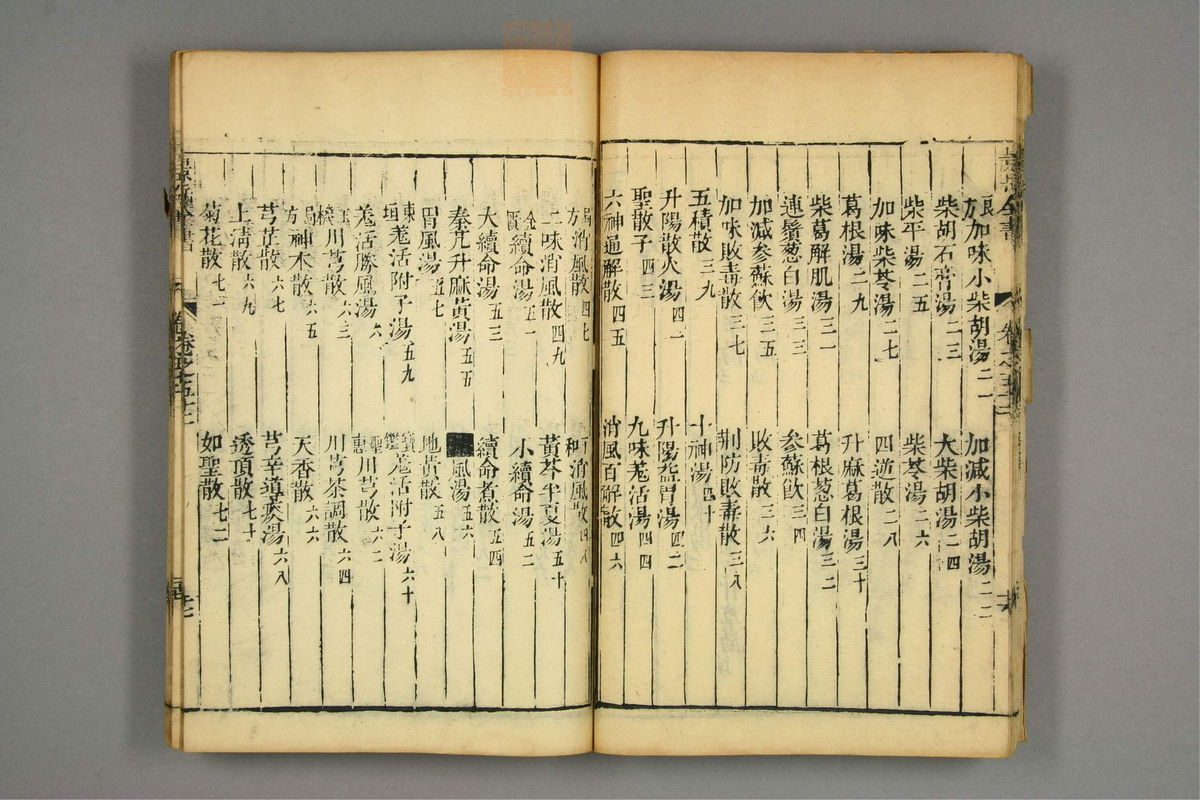 景岳全書 卷之五十二
良方加味小柴胡湯二一 加減小柴胡湯二二
柴胡石膏湯二三 大柴胡湯二四
柴平湯二五 柴苓湯二六
加味柴苓湯二七 四逆散二八
葛根湯二九 升麻葛根湯三十
柴葛解肌湯三一 葛根葱白湯三二
連鬚葱白湯三三 参蘇飲三四
加減参蘇飲三五 敗毒散三六
加味敗毒散三七 荆防敗毒散三八
五積散三九 十神湯四十
升陽散火湯四一 升陽益胃湯四二
聖散子四三 九味羗活湯四四
六神通解散四五 消風百解散四六
局方消風散四七 消風散四八
二味消風散四九 黃芩半夏湯五十
金匱續命湯五一 小續命湯五二
大續命湯五三 續命煮散五四
秦艽升麻黃湯五五 風湯五六
胃風湯五七 地黃散五八
東垣羗活附子湯五九 寳鑑羗活附子湯六十
羗活勝風湯六 聖惠川芎散六二
玉機川芎散六三 川芎茶調散六四
局方神术散六五 天香散六六
芎芷散六七 芎辛導痰湯六八
上清散六九 透頂散七十
菊花散七一 如聖散七二
卷之五十二